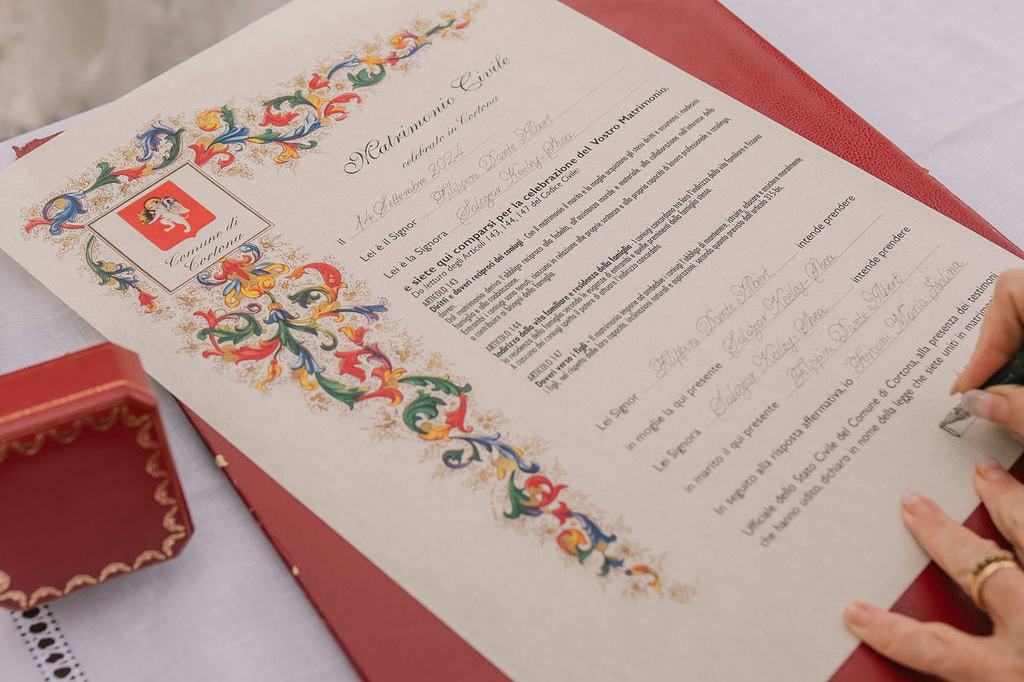 Comune di
Cortona
Matrimonio Civile
celebrato in Cortona
Il 14 Settembre 2024
Lei è il Signor Filippo Dante Albert
Lei è la Signora Salazar Keeley-Shea
e siete qui comparsi per la celebrazione del Vostro Matrimonio.
Do lettura degli Articoli 143, 144, 147 del Codice Civile:
ARTICOLO 143
Diritti e doveri reciproci dei coniugi - Con il matrimonio il marito e la moglie acquistano gli stessi diritti e assumono i medesimi
Dal matrimonio deriva l'obbligo reciproco alla fedeltà, all'assistenza morale e materiale, alla collaborazione nell'interesse della
famiglia e alla coabitazione.
Entrambi i coniugi sono tenuti, ciascuno in relazione alle proprie sostanze e alla propria capacità di lavoro professionale o casalingo,
a contribuire ai bisogni della famiglia.
ARTICOLO 144
Indirizzo della vita familiare e residenza della famiglia - I coniugi concordano tra loro l'indirizzo della vita familiare e fissano
la residenza della famiglia secondo le esigenze di entrambi e quelle preminenti della famiglia stessa.
A ciascuno dei coniugi spetta il potere di attuare l'indirizzo concordato.
ARTICOLO 147
Doveri verso i figli - Il matrimonio impone ad ambedue i coniugi l'obbligo di mantenere, istruire, educare e assistere moralmente
i figli, nel rispetto delle loro capacità, inclinazioni naturali e aspirazioni, secondo quanto previsto dall'articolo 315-bis.
Lei Signor Filippo Dante Albert intende prendere
in moglie la qui presente Salazar Keeley-Shea
Lei Signora Salazar Keeley-Shea intende prendere
in marito il qui presente Filippo Dante Albert
In seguito alla risposta affermativa, io
Ufficiale dello Stato Civile del Comune di Cortona, alla presenza dei testimoni
che hanno udito, dichiaro in nome della legge che siete uniti in matrim